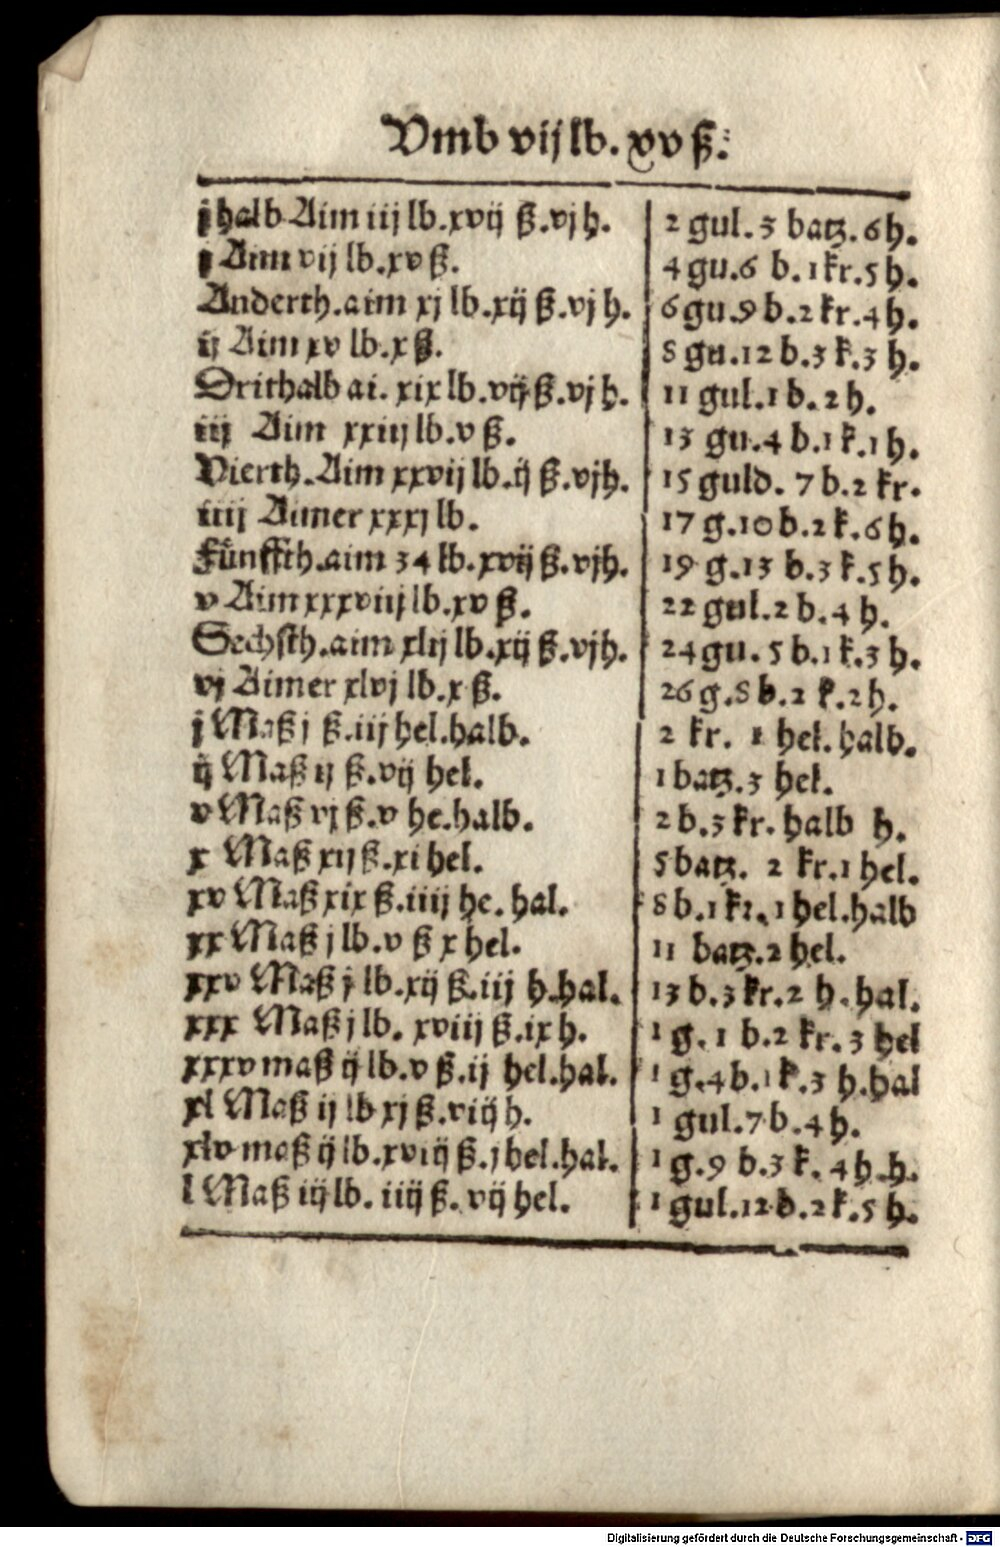 Vmb vij lb. xv ß.
j halb Aim iij lb. xvij ß. vj h. 2 gul. 3 batz. 6 h.
j Aim vij lb. xv ß. 4 gu. 6 b. 1 kr. 5 h.
Anderth. aim xj lb. xij ß. vj h. 6 gu. 9 b. 2 kr. 4 h.
ij Aim xv lb. x ß. 8 gu. 12 b. 3 k. 3 h.
Drithalb ai. xix lb. vij ß. vj h. 11 gul. 1 b. 2 h.
iij Aim xxiij lb. v ß. 13 gu. 4 b. 1 k. 1 h.
Vierth. Aim xxvij lb. ij ß. vj h. 15 guld. 7 b. 2 kr.
iiij Aimer xxxj lb. 17 g. 10 b. 2 k. 6 h.
Fünffth. aim 34 lb. xvij ß. vj h. 19 g. 13 b. 3 k. 5 h.
v Aim xxxviij lb. xv ß. 22 gul. 2 b. 4 h.
Sechsth. aim xlij lb. xij ß. vj h. 24 gu. 5 b. 1 k. 3 h.
vj Aimer xlvj lb. x ß. 26 g. 8 b. 2 k. 2 h.
j Maß j ß. iij hel. halb. 2 kr. 1 hel. halb.
ij Maß ij ß. vij hel. 1 batz. 3 hel.
v Maß vj ß. v he. halb. 2 b. 3 kr. halb h.
x Maß xij ß. xi hel. 5 batz. 2 kr. 1 hel.
xv Maß xix ß. iiij he. hal. 8 b. 1 kr. 1 hel. halb
xx Maß j lb. v ß x hel. 11 batz. 2 hel.
xxv Maß j lb. xij ß. iij h. hal. 13 b. 3 kr. 2 h. hal.
xxx Maß j lb. xviij ß. ix h. 1 g. 1 b. 2 kr. 3 hel
xxxv maß ij lb. v ß. ij hel. hal. 1 g. 4 b. 1 k. 3 h. hal
xl Maß ij lb xj ß. viij h. 1 gul. 7 b. 4 h.
xlv maß ij lb. xviij ß. j hel. hal. 1 g. 9 b. 3 k. 4 h. h.
l Maß iij lb. iiij ß. vij hel. 1 gul. 12 b. 2 k. 5 h.
Digitalisierung gefördert durch die Deutsche Forschungsgemeinschaft - DFG